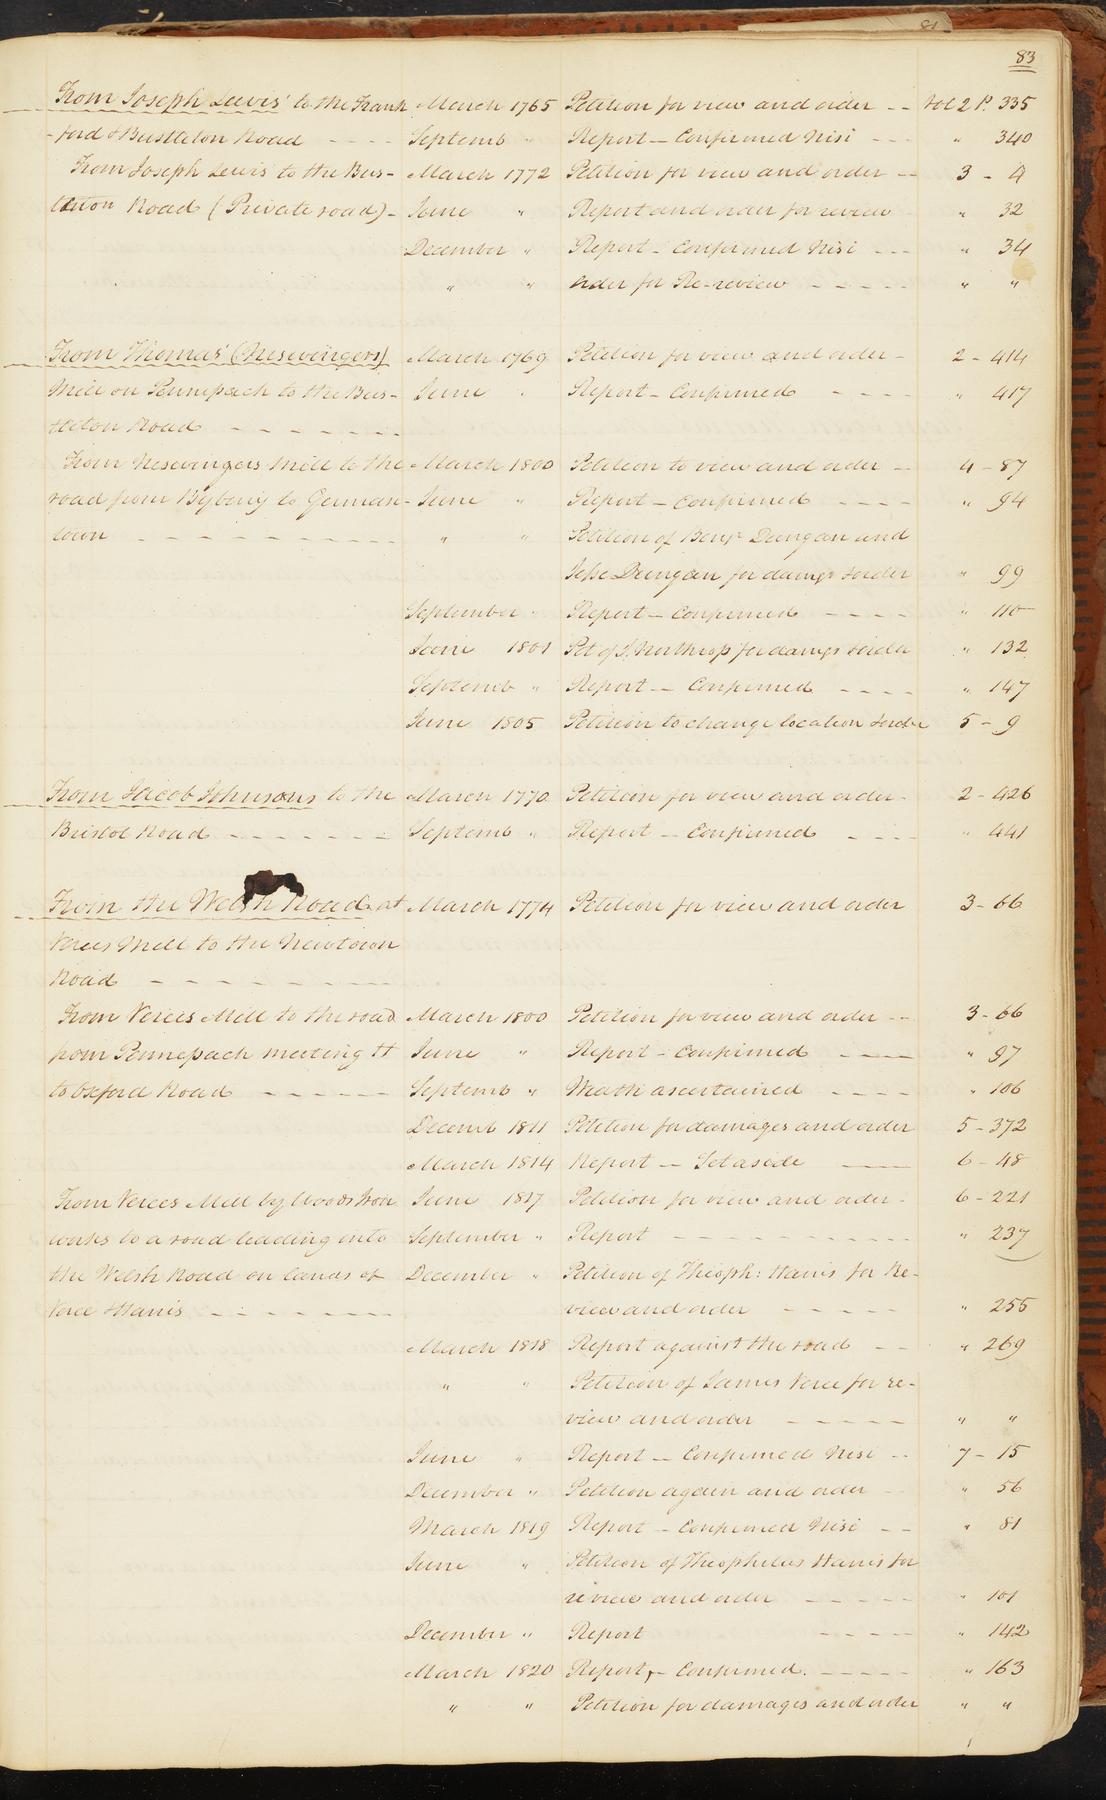 83
From Joseph Lewis' to the Frank March 1765 Petition for view and order -- Vol 2 P. 335
-ford & Bustleton Road ---- Septemb " Report — Confirmed Nisi --- " 340
From Joseph Lewis to the Bus- March 1772 Petition for view and order -- 3 - 4
tleton Road (Private road) - June " Report and order for review " 32
December " Report - Confirmed Nisi --- " 34
" " Order for Re-review ----- " "
From Thomas' (Mesevingers) March 1769 Petition for view and order - 2 - 414
Mill on Pennepack to the Bus- June " Report - Confirmed ---- " 417
tleton Road -------
From Nesevingers Mill to the March 1800 Petition to view and order -- 4 - 87
road from Byberry to German- June " Report — Confirmed ---- " 94
town ---------- " " Petition of Benjn Dungan and
Jesse Dungan for damgs & order " 99
September " Report — Confirmed ---- " 110
June 1801 Pet of J. Northrop for damgs & order " 132
Septemb " Report — Confirmed ---- " 147
June 1805 Petition to change location & order 5 - 9
From Jacob Johnsons to the March 1770 Petition for view and order - 2 - 426
Bristol Road ------- Septemb " Report — Confirmed ---- " 441
From the Welsh Road at March 1774 Petition for view and order 3 - 66
Verees Mill to the Newtown
Road ----------
From Verees Mill to the road March 1800 Petition for view and order -- 3 - 66
from Pennepack meeting H June " Report - Confirmed ---- " 97
to Oxford Road ------ Septemb " Width ascertained ---- " 106
Decemb 1811 Petition for damages and order 5 - 372
March 1814 Report — Set aside —— 6 - 48
From Verees Mill by Woods Iron June 1817 Petition for view and order - 6 - 221
works to a road leading into September " Report ----------- " 237
the Welsh Road on lands of December " Petition of Theoph: Harris for Re-
Veree & Harris -------- view and order ----- " 255
March 1818 Report against the road -- " 269
" " Petition of James Veree for re-
view and order ----- " "
June " Report — Confirmed Nisi -- 7 - 15
December " Petition again and order -- " 56
March 1819 Report - Confirmed Nisi -- " 81
June " Petition of Theophilus Harris for
review and order ----- " 101
December " Report ----- " 142
March 1820 Report, - Confirmed. ----- " 163
" " Petition for damages and order " "